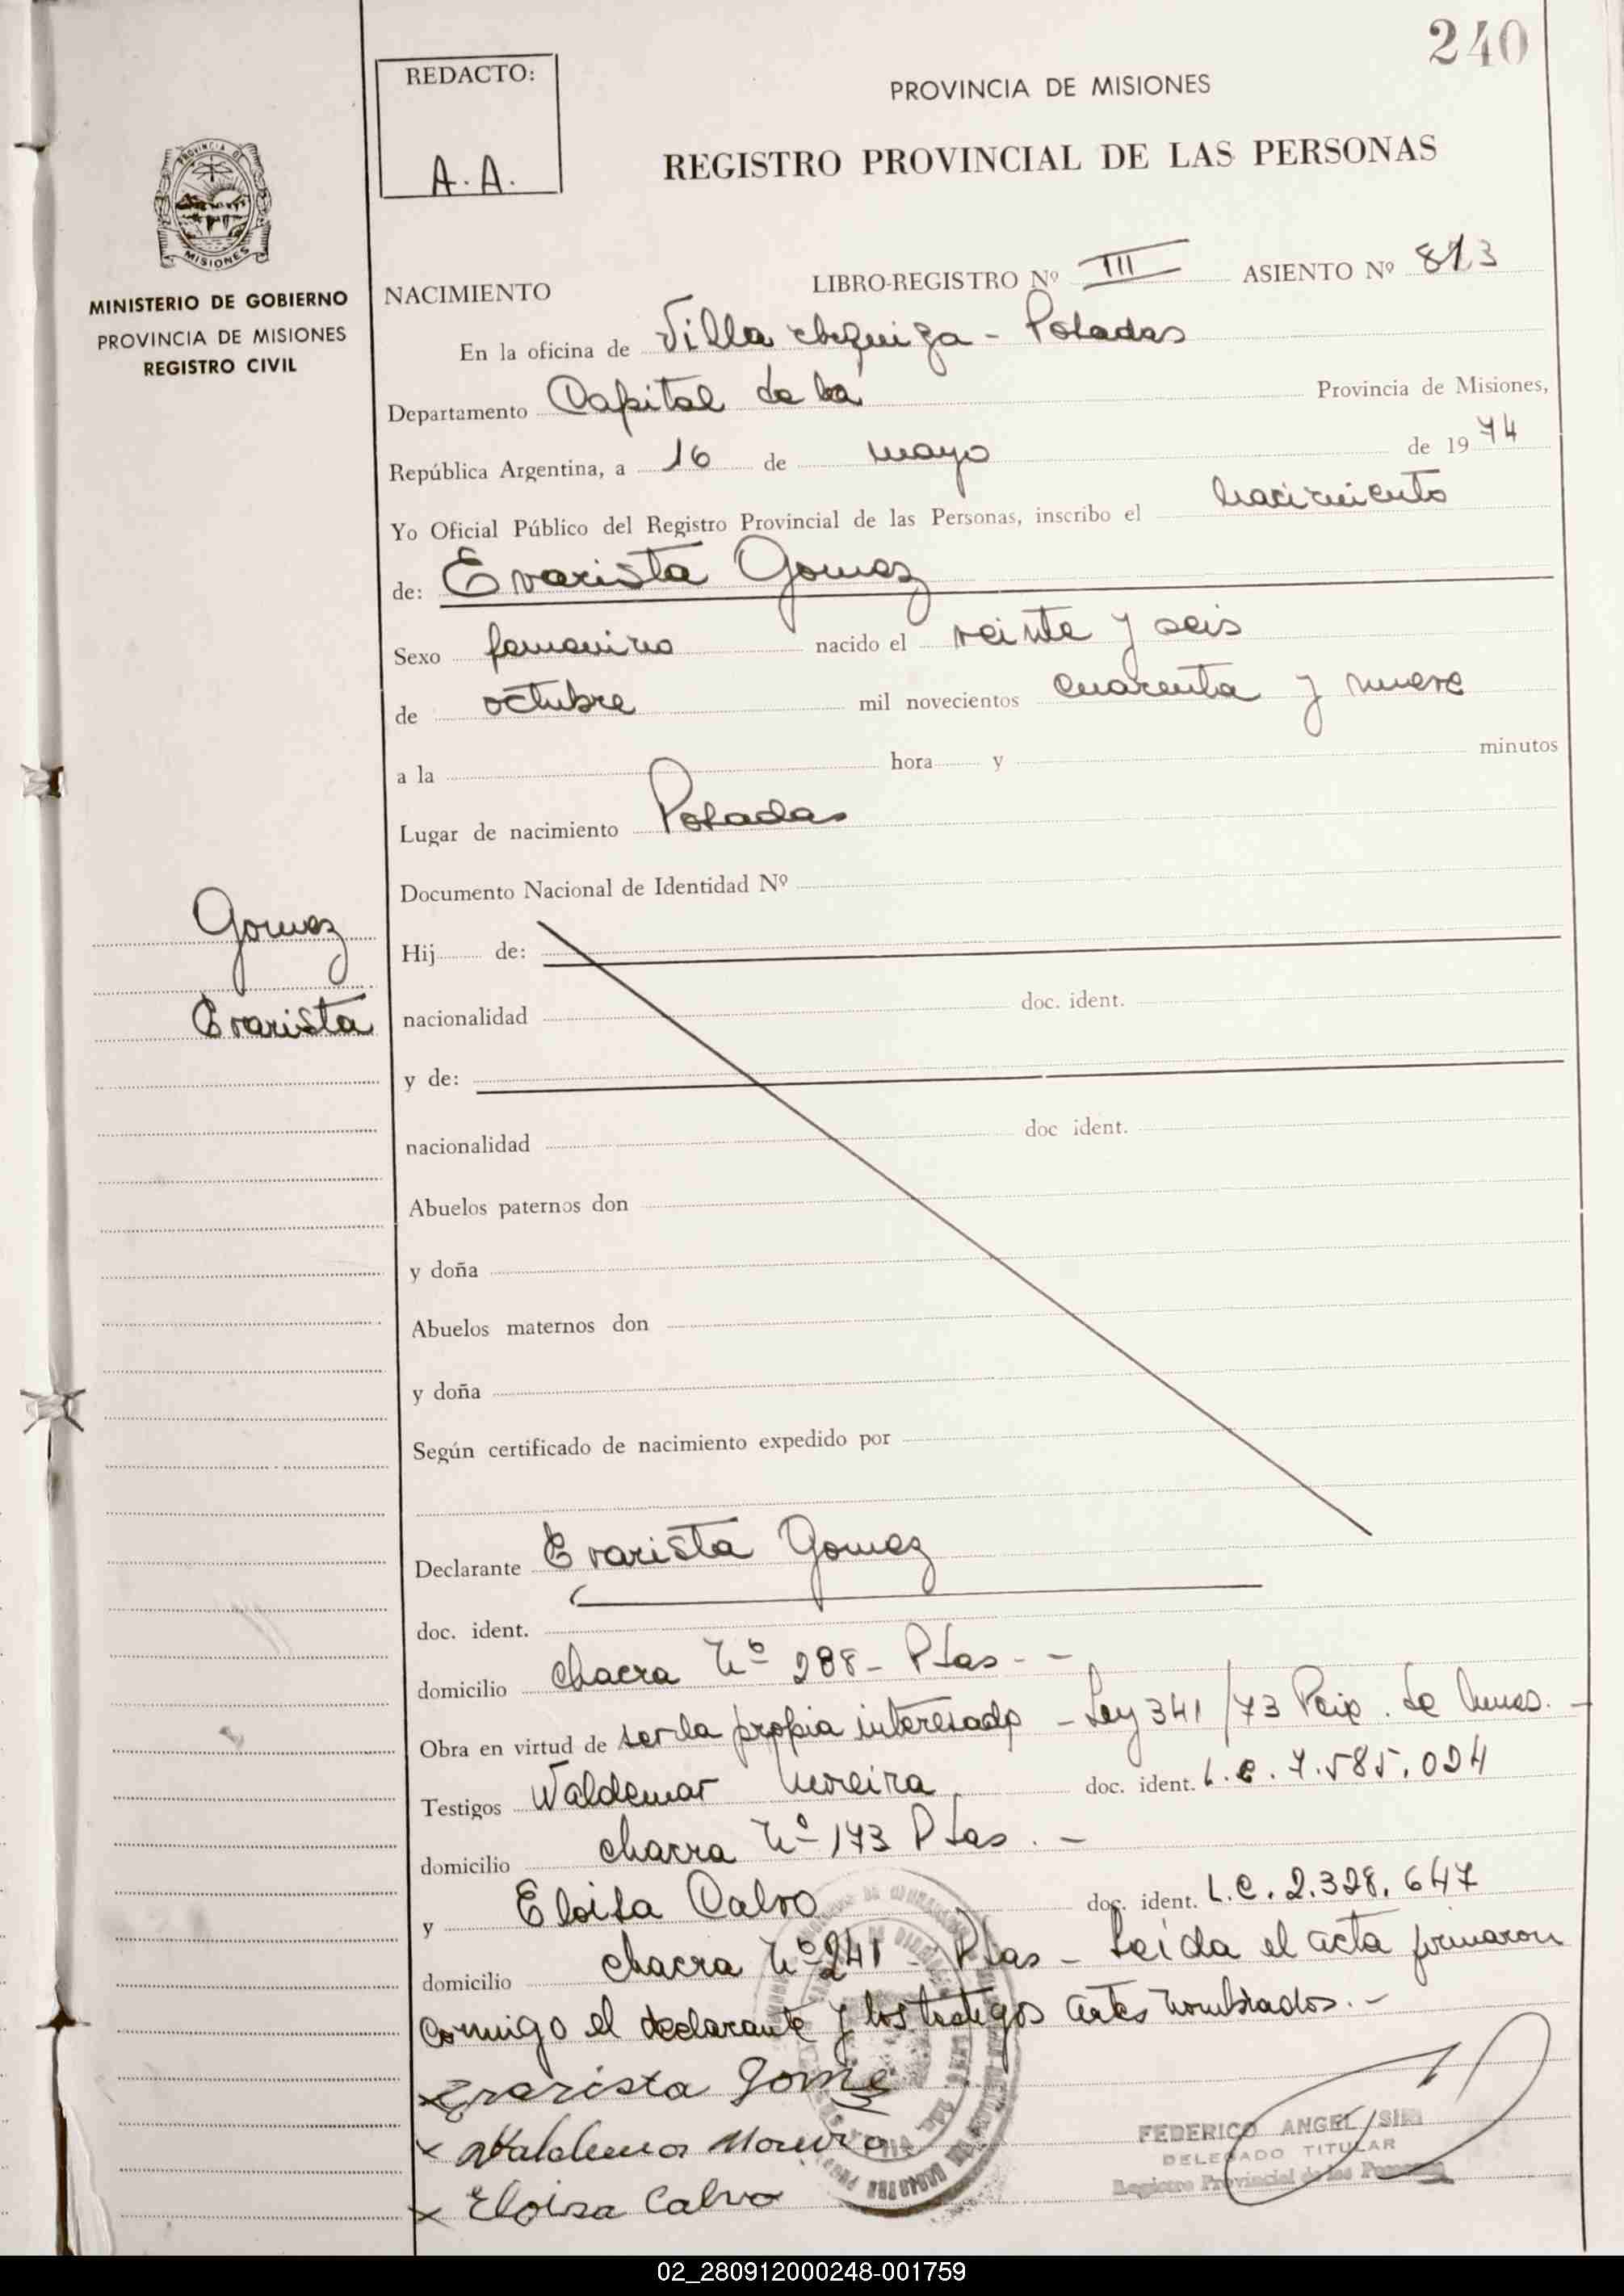 240
REDACTO:
A. A.
PROVINCIA DE MISIONES
REGISTRO PROVINCIAL DE LAS PERSONAS
PROVINCIA DE
MISIONES
MINISTERIO DE GOBIERNO
PROVINCIA DE MISIONES
REGISTRO CIVIL
NACIMIENTO
LIBRO-REGISTRO Nº III ASIENTO Nº 813
En la oficina de Villa Urquiza - Posadas
Departamento Capital de la Provincia de Misiones,
República Argentina, a 16 de mayo de 1974
Yo Oficial Público del Registro Provincial de las Personas, inscribo el nacimiento
de: Evarista Gomez
Sexo femenino nacido el veinte y seis
de octubre mil novecientos cuarenta y nueve
a la hora y minutos
Lugar de nacimiento Posadas
Documento Nacional de Identidad Nº
Gomez
Evarista
Hij de:
nacionalidad doc. ident.
y de:
nacionalidad doc ident.
Abuelos paternos don
y doña
Abuelos maternos don
y doña
Según certificado de nacimiento expedido por
Declarante Evarista Gomez
doc. ident.
domicilio chacra Nº 288 - Pdas. -
Obra en virtud de ser la propia interesada - Ley 341/73
Testigos Waldemar Moreira doc. ident. L.E. 7.585.024
domicilio chacra Nº 173 Pdas. -
y Eloisa Calvo doc. ident. L.C. 2.328.647
domicilio chacra Nº 241 Pdas - Leída el acta firmaron
conmigo el declarante y los testigos antes nombrados. -
x Evarista Gome
x Waldemar Moreira
x Eloisa Calvo
FEDERICO ANGEL SIRI
DELEGADO TITULAR
Registro Provincial de las Personas
02_280912000248-001759